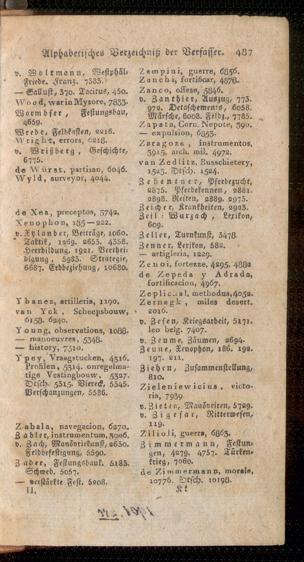 Alphabetisches Verzeichniß der Verfasser. 487
v. Woltmann, Westphäl.
Friede. Franz. 7383.
— Sallust, 370. Tacitus, 450.
Wood, war in Mysore, 7833.
Wormbser, Festungsbau,
4659.
Wrede, Feldkassen, 2216.
Wright, errors, 6218.
v. Wrißberg, Geschichte,
6775.
de Wurst, partisan, 6046.
Wyld, surveyor, 4044.
de Xea, preceptos, 3742.
Xenophon, 185—222.
v. Xylander, Beiträge, 1060.
Taktik, 1269. 2655. 4358.
Heerbildung, 1921. Vertheidigung, 5983. Strategie,
6687. Erdbeziehung, 10680.
Ybanes, artilleria, 1190.
van Yok, Scheepsbouw,
6158. 6240.
Young, observations, 1088.
— manoeuvres, 5348.
— history, 7310.
Ypey, Vraagstucken, 4316.
Profilen, 5314. onregelmatige Vestingbouw, 5327.
Dtsch. 5315. Viereck, 5345.
Verschanzungen, 5586.
Zabala, navegacion, 6270.
Zabler, instrumentum, 8906.
v. Zach, Manövrirkunst, 2650.
Feldbefestigung, 5590.
Zader, Festungsbauk. 5183.
Schwed. 5057.
— verstärkte Fest. 5208.
II.
Zampini, guerre, 6856.
Zanchi, fortificar, 4878.
Zanco, offese, 5846.
v. Zanthier, Auszug, 773.
972. Detaschements, 6058.
Märsche, 6008. Feldz., 7785.
Zapata, Corn. Nepote, 390.
— expulsion, 6853.
Zaragoza, instrumentos,
3915. arch. mil. 4972.
van Zedlitz, Busschietery,
1523. Dtsch. 1524.
Zehentner, Pferdezucht,
2875. Pferdekennen, 2881.
2898. Reiten, 2889. 2973.
Zeicher, Krankheiten, 2923.
Zeil : Wurzach, Lexikon,
609.
Zeller, Turnkunst, 5478.
Zenner, Lexikon, 582.
— artigleria, 1229.
Zenoi, fortezze, 4295. 4882
de Zepeda y Adrada,
fortificacion, 4967.
Zeplichal, methodus, 4052.
Zernegk, miles desert.
2016.
v. Zesen, Kriegsarbeit, 5171.
leo belg. 7407.
v. Zeume, Zäumen, 2694.
Zeune, Xenophon, 186. 192.
197. 211.
Ziehen, Zusammenstellung,
810.
Zieleniewicius, victoria, 7939
v. Zieten, Manövriren, 5729.
v. Zigesar, Ritterwesen,
119.
Zilioli, guerra, 6863.
Zimmermann, Festungen, 4279. 4757. Türkenkrieg, 7060.
de Zimmermann, morale,
10776. Dtsch. 10198.
Kk